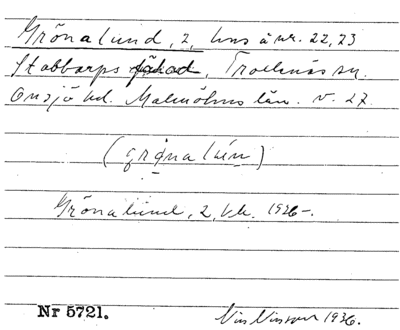 Grönalund, 2, hus å nr. 22, 23
Stabbarps fälad, Trollenäs sn.
Onsjö hd. Malmöhus län. v. 27.
(grönalún)
Grönalund, 2, Vk. 1926-.
Nr 5721. Nils Nilsson 1936.